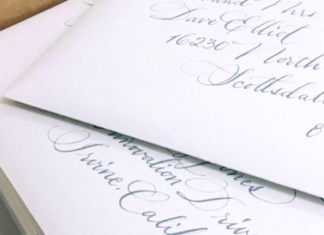 and Mrs.
Dave Elliot
16230 North
Scottsdal
Jones
Innovation Driv
Irvine, Calif